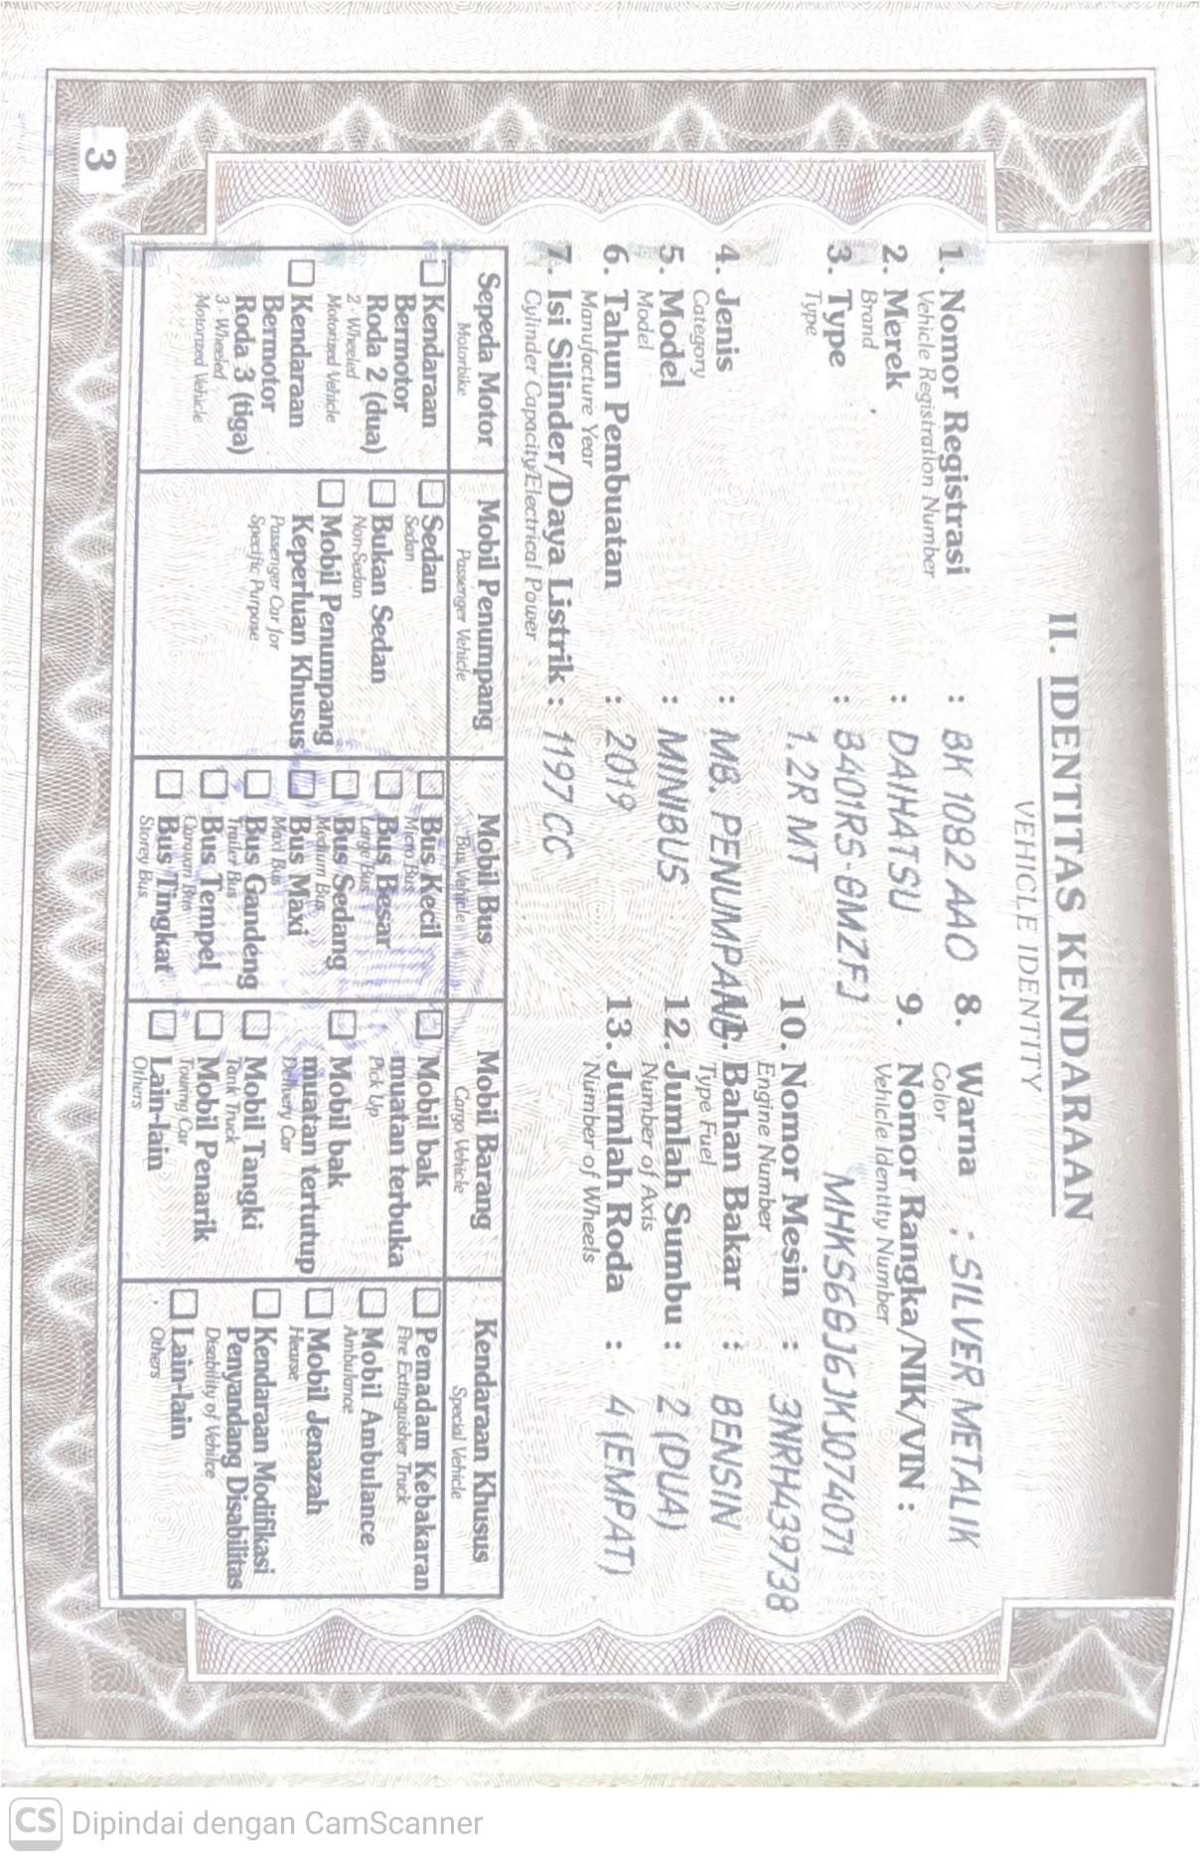 II. IDENTITAS KENDARAAN
VEHICLE IDENTITY
1. Nomor Registrasi : BK 1082 AAO
Vehicle Registration Number
2. Merek : DAIHATSU
Brand
3. Type : B401RS-GMZFJ
Type 1.2R MT
4. Jenis : MB. PENUMPANG
Category
5. Model : MINIBUS
Model
6. Tahun Pembuatan : 2019
Manufacture Year
7. Isi Silinder/Daya Listrik : 1197 CC
Cylinder Capacity/Electrical Power
8. Warna : SILVER METALIK
Color
9. Nomor Rangka/NIK/VIN :
Vehicle Identity Number
MHKS6GJ6JKJ074071
10. Nomor Mesin : 3NRH439738
Engine Number
11. Bahan Bakar : BENSIN
Type Fuel
12. Jumlah Sumbu : 2 (DUA)
Number of Axis
13. Jumlah Roda : 4 (EMPAT)
Number of Wheels
Sepeda Motor
Motorbike
Kendaraan
Bermotor
Roda 2 (dua)
2 - Wheeled
Motorized Vehicle
Kendaraan
Bermotor
Roda 3 (tiga)
3 - Wheeled
Motorized Vehicle
Mobil Penumpang
Passenger Vehicle
Sedan
Sedan
Bukan Sedan
Non-Sedan
Mobil Penumpang
Keperluan Khusus
Passenger Car for
Specific Purpose
Mobil Bus
Bus Vehicle
Bus Kecil
Micro Bus
Bus Besar
Large Bus
Bus Sedang
Medium Bus
Bus Maxi
Maxi Bus
Bus Gandeng
Trailer Bus
Bus Tempel
Caravan Bus
Bus Tingkat
Storey Bus
Mobil Barang
Cargo Vehicle
Mobil bak
muatan terbuka
Pick Up
Mobil bak
muatan tertutup
Delivery Car
Mobil Tangki
Tank Truck
Mobil Penarik
Towing Car
Lain-lain
Others
Kendaraan Khusus
Special Vehicle
Pemadam Kebakaran
Fire Extinguisher Truck
Mobil Ambulance
Ambulance
Mobil Jenazah
Hearse
Kendaraan Modifikasi
Penyandang Disabilitas
Disability of Vehilce
Lain-lain
Others
3
CS Dipindai dengan CamScanner